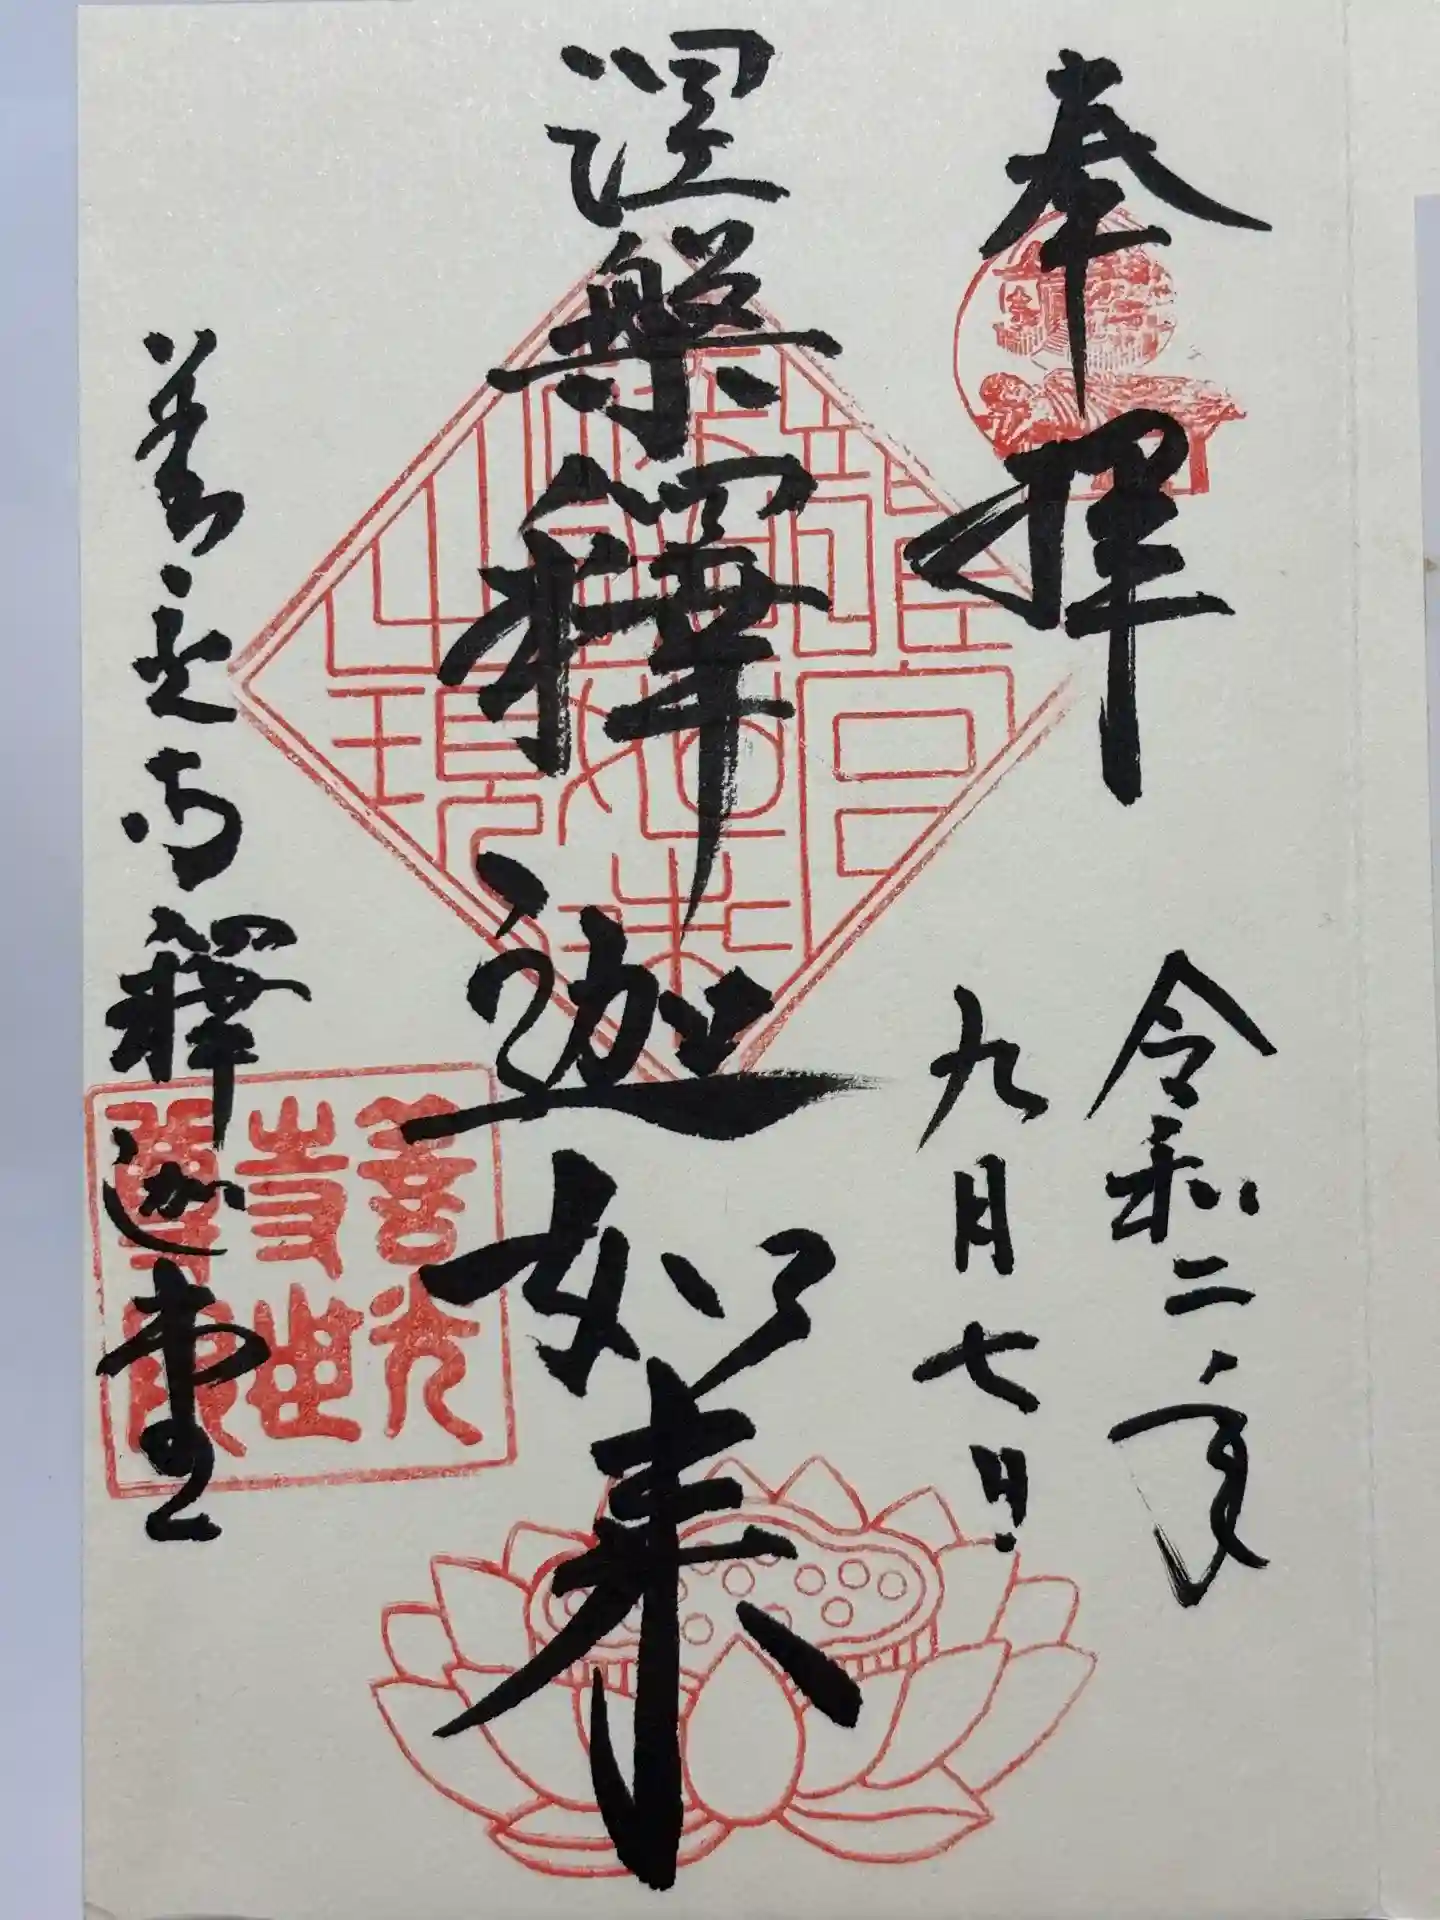 奉拝
令和二年
九月七日
涅槃釋迦如来
善光寺釋迦堂
善光
寺世
尊院